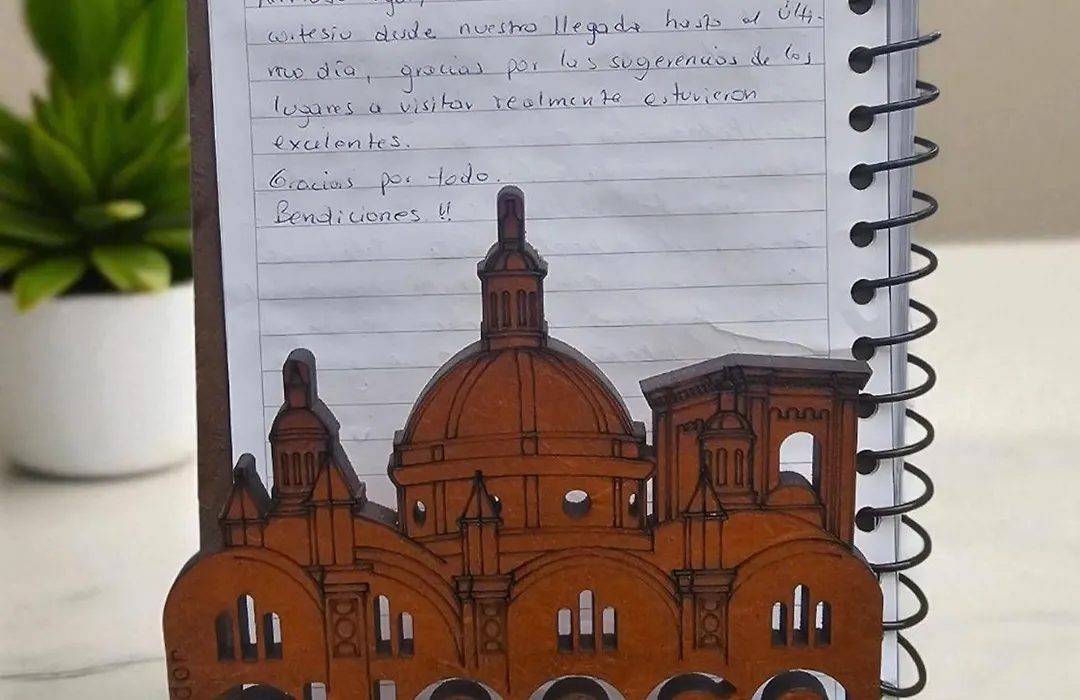 cortesía desde nuestra llegada hasta el últi-
mo día, gracias por las sugerencias de los
lugares a visitar realmente estuvieron
excelentes.
Gracias por todo.
Bendiciones !!